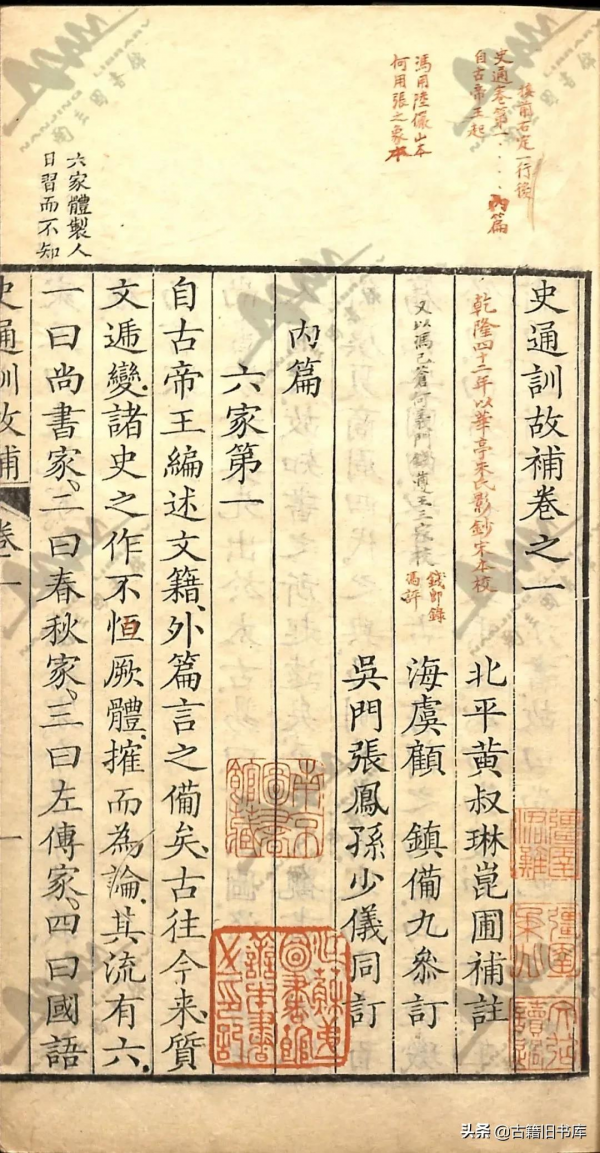 接前右定一行後
史通卷第一・・・・內篇
自古帝王起
馮用陸儼山本
何用張之象本
六家體製人
日習而不知
史通訓故補卷之一
乾隆四十二年以華亭朱氏影鈔宋本校
北平黃叔琳崑圃補註
又以馮己蒼何義門錢遵王三家校
錢郎錄
馮評
海虞顧 鎮備九參訂
吳門張鳳孫少儀同訂
內篇
六家第一
自古帝王編述文籍、外篇言之備矣、古往今來、質
文遞變、諸史之作、不恒厥體、搉而為論、其流有六、
一曰尚書家、二曰春秋家、三曰左傳家、四曰國語
史通訓故補 卷一
一
南京圖書館藏
頭条 @古籍旧书库